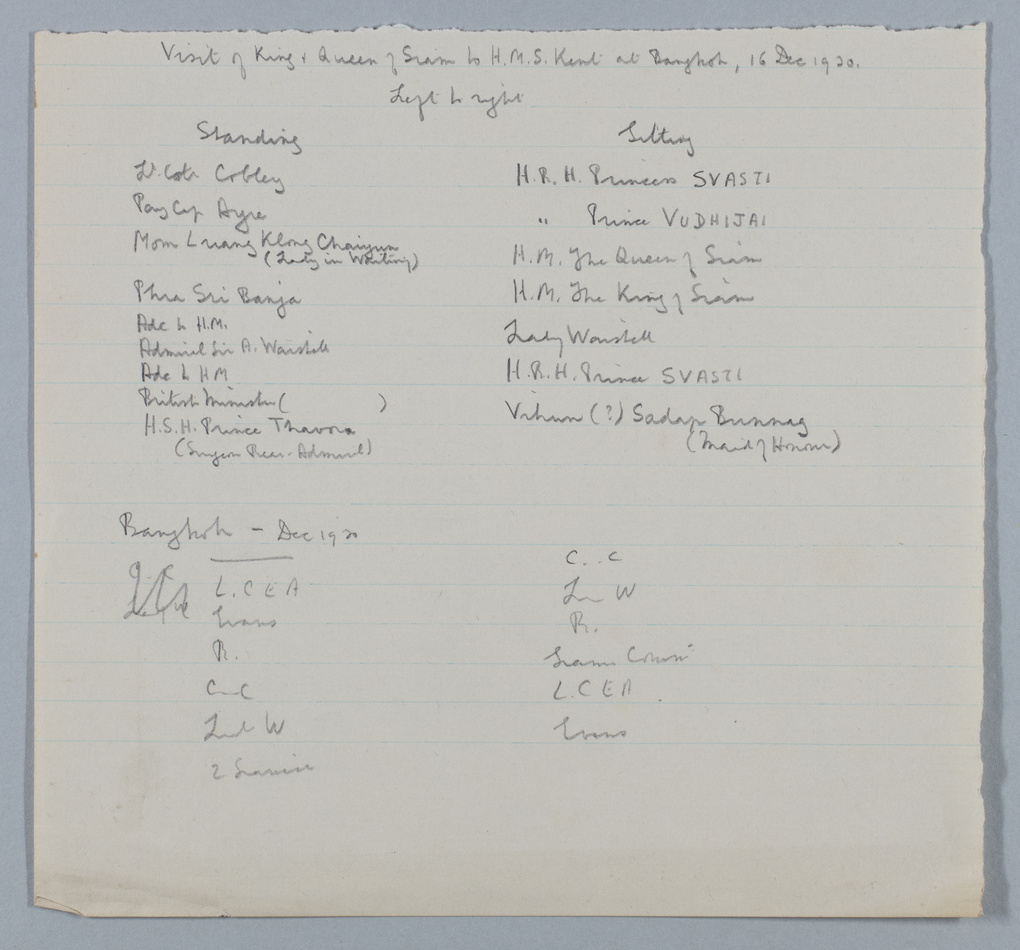 Visit of King & Queen of Siam to H.M.S. Kent at Bangkok, 16 Dec 1930.
Left to right
Standing
Lt. Cobley
Pay Ayre
Mom Luang Klong Chaiyun
(Lady in Waiting)
Phra Sri Banja
Adc to H.M.
Admiral Sir A. Waistell
Adc to H.M.
British Minister ( )
H.S.H. Prince Thavora
(Surgeon Rear-Admiral)
Sitting
H.R.H. Princess SVASTI
" Prince VUDHIJAI
H.M. The Queen of Siam
H.M. The King of Siam
Lady Waistell
H.R.H. Prince SVASTI
(?) Sadap Bunnag
(Maid of Honour)
Bangkok - Dec 1930
L.C E A
Evans
R.
C-C
W
2 Siamese
C..C
W
R.
L.C E A.
Evans